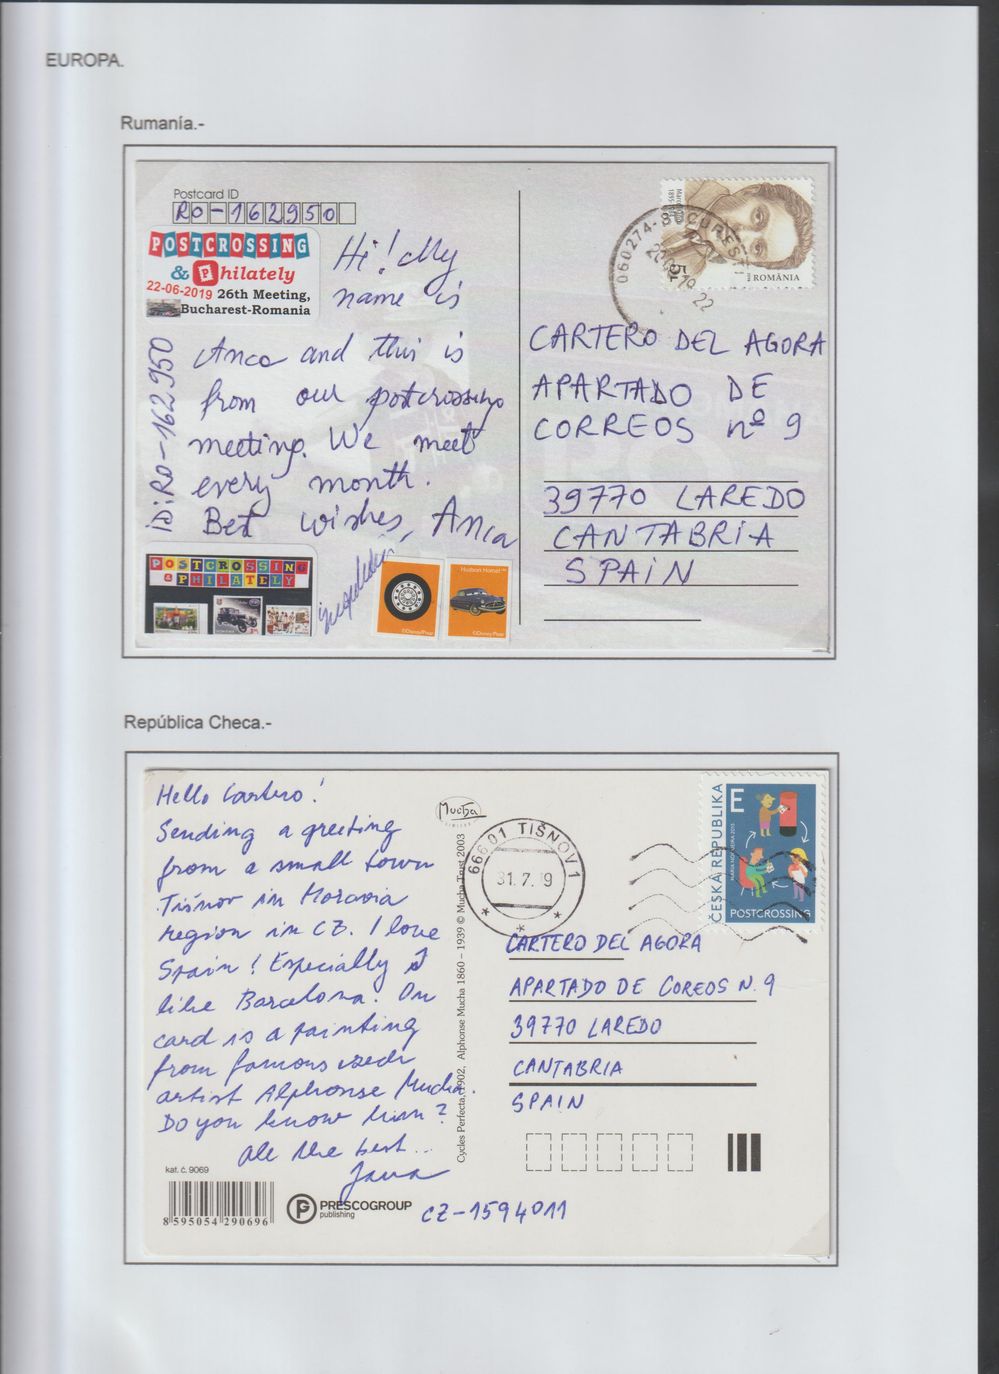 EUROPA.
Rumanía.-
Postcard ID
RO-162950
POSTCROSSING
& Philately
22-06-2019 26th Meeting,
Bucharest-Romania
Hi! My
name is
Anca and this is
from our postcrossing
meeting. We meet
every month.
Bet wishes, Anca
iD: RO-162950
POSTCROSSING
& PHILATELY
Hudson Hornet™
©Disney/Pixar
©Disney/Pixar
060274-BUCUREȘTI
ROMÂNIA
CARTERO DEL AGORA
APARTADO DE
CORREOS nº 9
39770 LAREDO
CANTABRIA
SPAIN
República Checa.-
Hello Cartero!
Sending a greeting
from a small town
Tišnov in Moravia
region in CZ. I love
Spain! Especially I
like Barcelona. On
card is a painting
from famous czech
artist Alphonse Mucha.
Do you know him?
All the best...
Jana
kat. č. 9069
8 595054 290696
PRESCOGROUP
publishing
CZ-1594011
Mucha
Cycles Perfecta, 1902, Alphonse Mucha 1860 – 1939 © Mucha Trust 2003
66601 TIŠNOV 1
31.7.19
ČESKÁ REPUBLIKA
E
POSTCROSSING
CARTERO DEL AGORA
APARTADO DE COREOS N. 9
39770 LAREDO
CANTABRIA
SPAIN